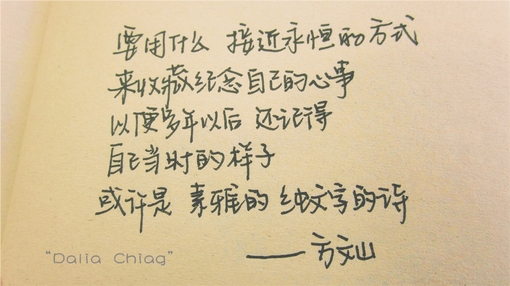 要用什么 接近永恒的方式
来收藏纪念自己的心事
以便多年以后 还记得
自己当时的样子
或许是 素雅的 纯文字的诗
——方文山
"Dalia Chiag"